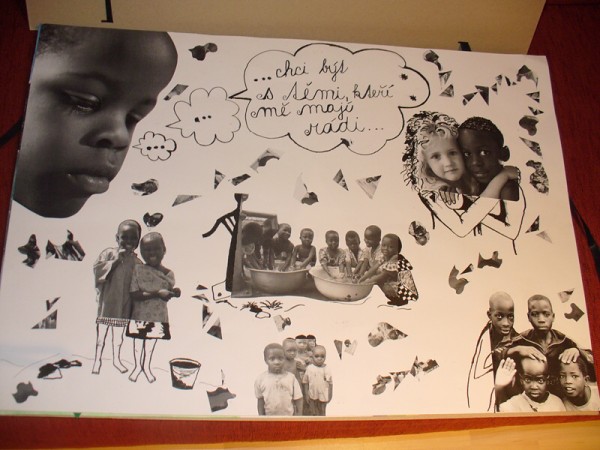 ...chci být
s těmi, kteří
mě mají
rádi...
...